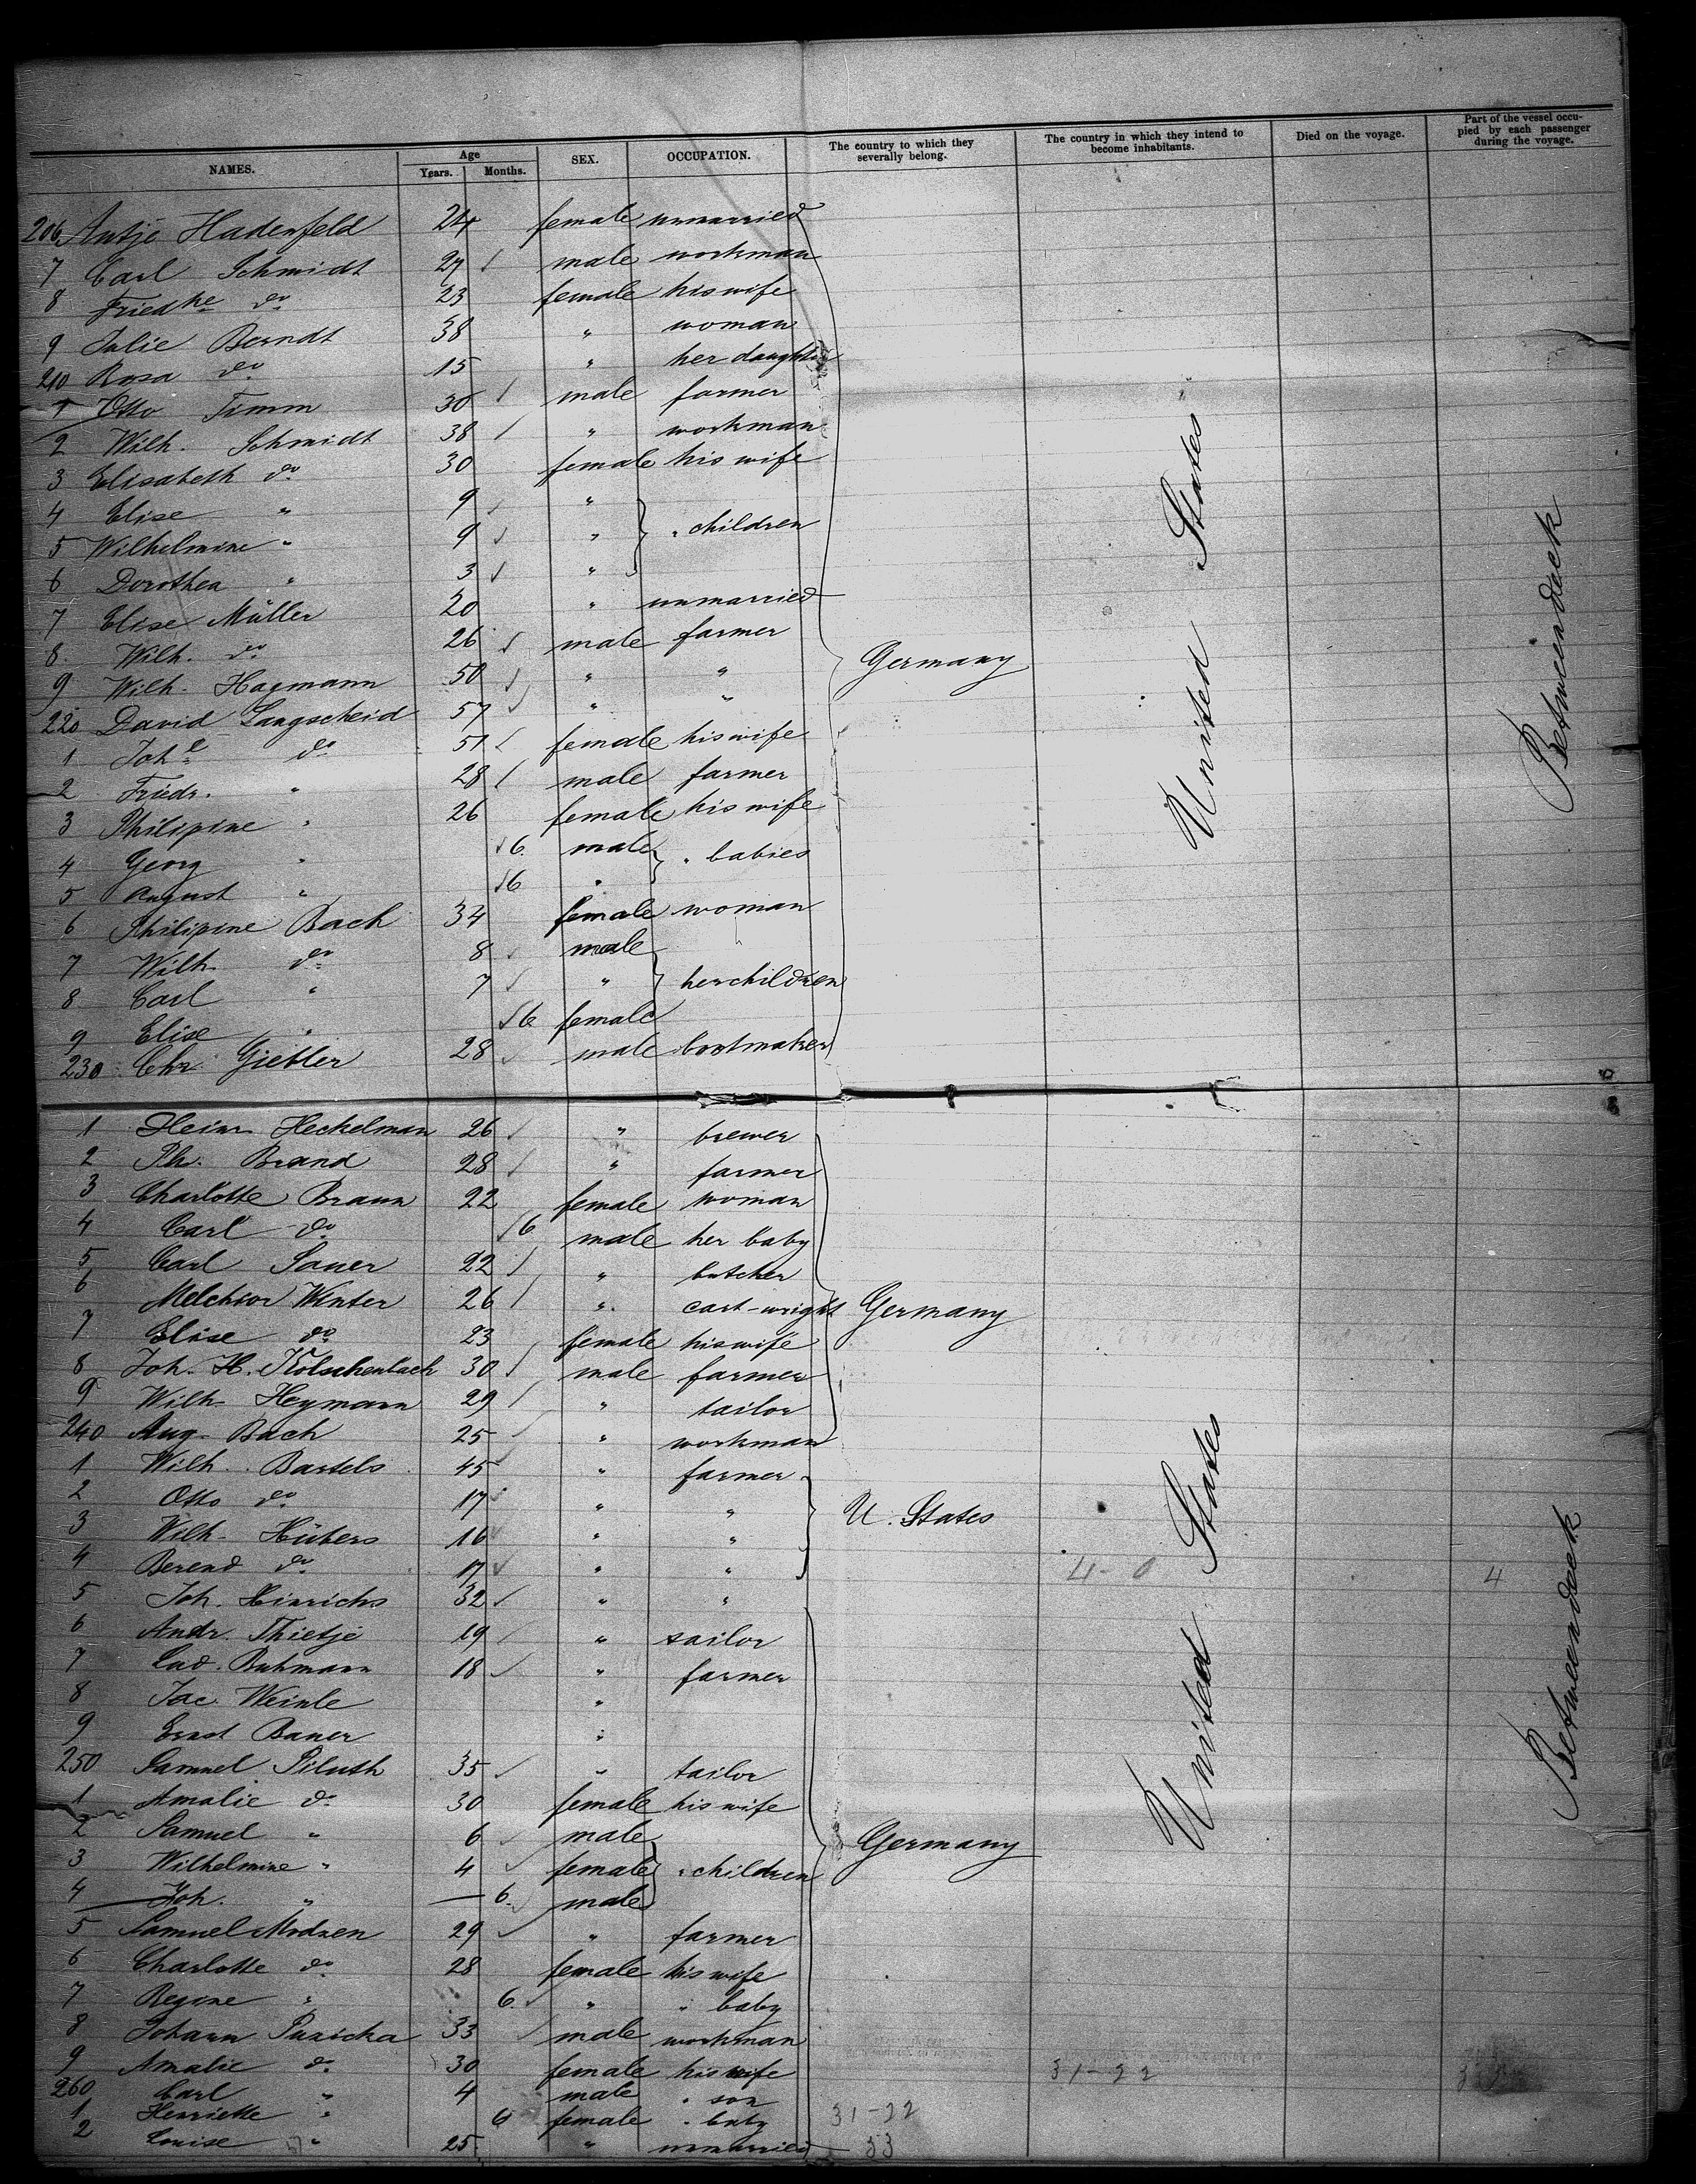 NAMES. Age Years. Months. SEX. OCCUPATION. The country to which they severally belong. The country in which they intend to become inhabitants. Died on the voyage. Part of the vessel occupied by each passenger during the voyage.
206 Antje Hadenfeld 24 female unmarried
7 Carl Schmidt 27 male workman
8 Friedke do 23 female his wife
9 Julie Berndt 38 " woman
210 Rosa do 15 " her daughter
1 Otto Timm 30 male farmer
2 Wilh. Schmidt 38 " workman
3 Elisabeth do 30 female his wife
4 Elise " 9 "
5 Wilhelmine " 9 " " children
6 Dorothea " 3 "
7 Elise Müller 20 " unmarried
8 Wilh. do 26 male farmer
9 Wilh. Hagmann 50 " " Germany
220 David Langscheid 57 " "
1 Johe do 51 female his wife
2 Friedr. " 28 male farmer
3 Philipine " 26 female his wife
4 Georg " 6 male " babies
5 August " 6 "
6 Philipine Bach 34 female woman
7 Wilh. do 8 male
8 Carl " 7 " her children
9 Elise " 6 female
230 Chr. Giebler 28 male bootmaker
United States
Betweendeck
1 Heinr. Heckelman 26 " brewer
2 Ph. Brand 28 " farmer
3 Charlotte Braun 22 female woman
4 Carl do 6 male her baby
5 Carl Sauer 22 " butcher
6 Melchior Winter 26 " cart-wright Germany
7 Elise do 23 female his wife
8 Joh. H. Kolschenbach 30 male farmer
9 Wilh. Heymann 29 " tailor
240 Aug. Bach 25 " workman
1 Wilh. Bartels 45 " farmer
2 Otto do 17 " "
3 Wilh. Hübers 16 " " U. States
4 Berend do 17 " " 4-0 4
5 Joh. Hinrichs 32 " "
6 Andr. Thietje 19 " sailor
7 Lud. Buhmann 18 " farmer
8 Jac. Weinle "
9 Ernst Bauer "
250 Samuel Piluth 35 " tailor
1 Amalie do 30 female his wife
2 Samuel " 6 male
3 Wilhelmine " 4 female " children Germany
4 Joh. " — 6 male
5 Samuel Modzen 29 " farmer
6 Charlotte do 28 female his wife
7 Regine " 6 " " baby
8 Johann Puzicka 33 male workman
9 Amalie do 30 female his wife 31-22
260 Carl " 4 male " son
1 Henriette " 6 female " baby 31-22
2 Louise " 25 " unmarried 53
United States
Betweendeck